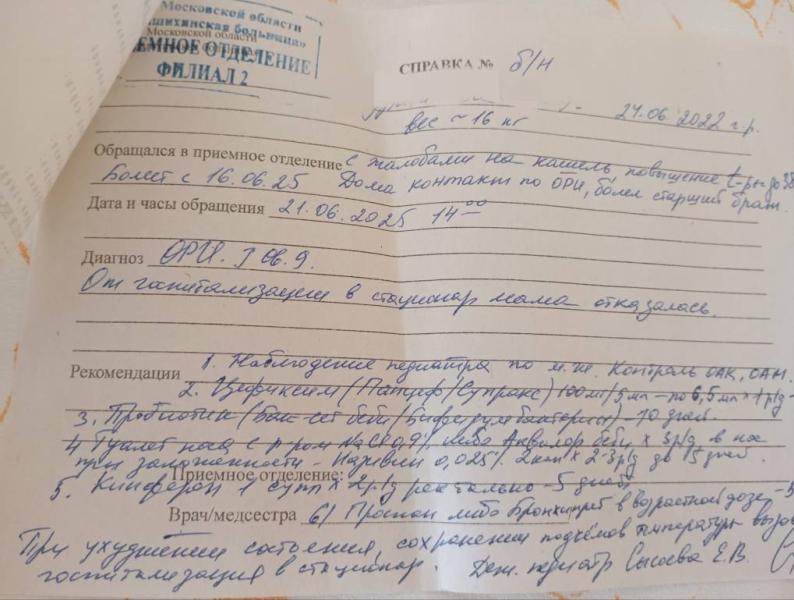 Московской области
больница»
Московской области
ПРИЕМНОЕ ОТДЕЛЕНИЕ
ФИЛИАЛ 2
СПРАВКА № б/н
24.06.2022 г.р.
вес ~ 16 кг
Обращался в приемное отделение с жалобами на кашель, повышение t-ры до 38
Болеет с 16.06.25 Дома контакт по ОРИ, болел старший брат.
Дата и часы обращения 21.06.2025 14 00
Диагноз ОРИ. J 06.9.
От госпитализации в стационар мама отказалась.
Рекомендации 1. Наблюдение педиатра по м.ж. Контроль ОАК, ОАМ.
2. Цефиксим (Панцеф/Супракс) 100мг/5мл - по 6,5мл × 1 р/д -
3. Пробиотик (Бак-сет беби/Бифидумбактерин) - 10 дней.
4 Туалет носа с р-ром NaCl 0,9%, либо Аквалор беби × 3 р/д в нос
при заложенности - Називин 0,025% 2 кап × 2-3 р/д до 5 дней.
Приемное отделение:
5. Кипферон 1 супп × 2 р/д ректально - 5 дней
Врач/медсестра 6) Проспан либо Бронхипрет в возрастной дозе - 5
При ухудшении состояния, сохранении подъёмов температуры вызов
госпитализация в стационар. Деж. педиатр Сысоева Е.В.